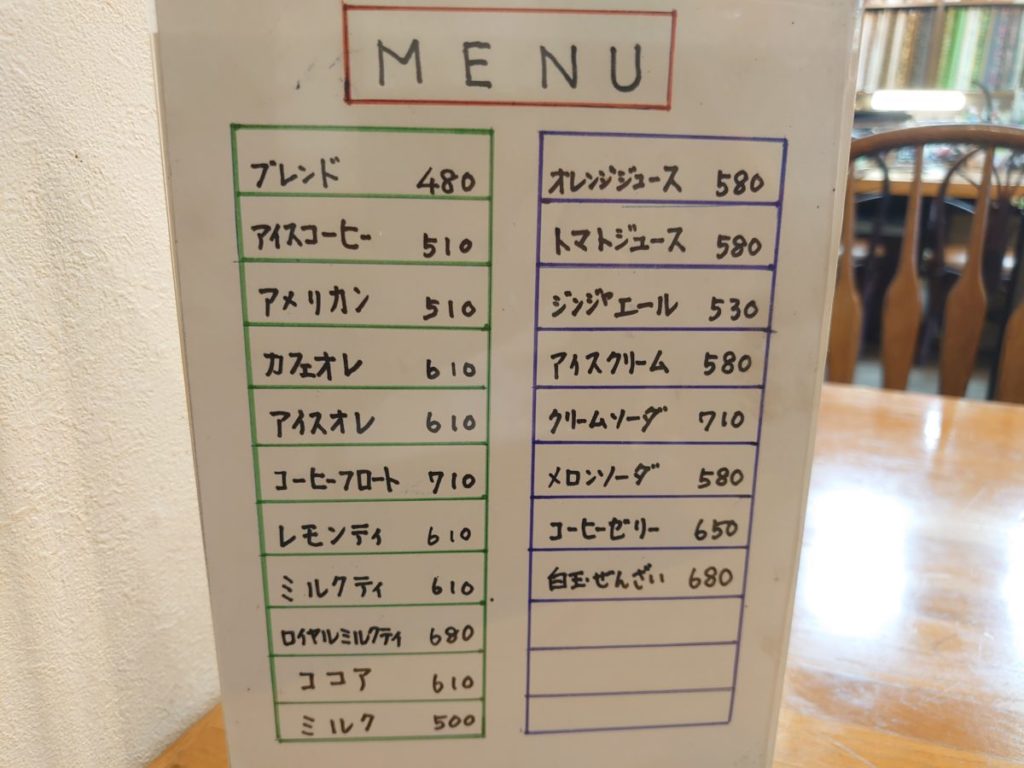 MENU
ブレンド 480
アイスコーヒー 510
アメリカン 510
カフェオレ 610
アイスオレ 610
コーヒーフロート 710
レモンティ 610
ミルクティ 610
ロイヤルミルクティ 680
ココア 610
ミルク 500
オレンジジュース 580
トマトジュース 580
ジンジャエール 530
アイスクリーム 580
クリームソーダ 710
メロンソーダ 580
コーヒーゼリー 650
白玉・ぜんざい 680